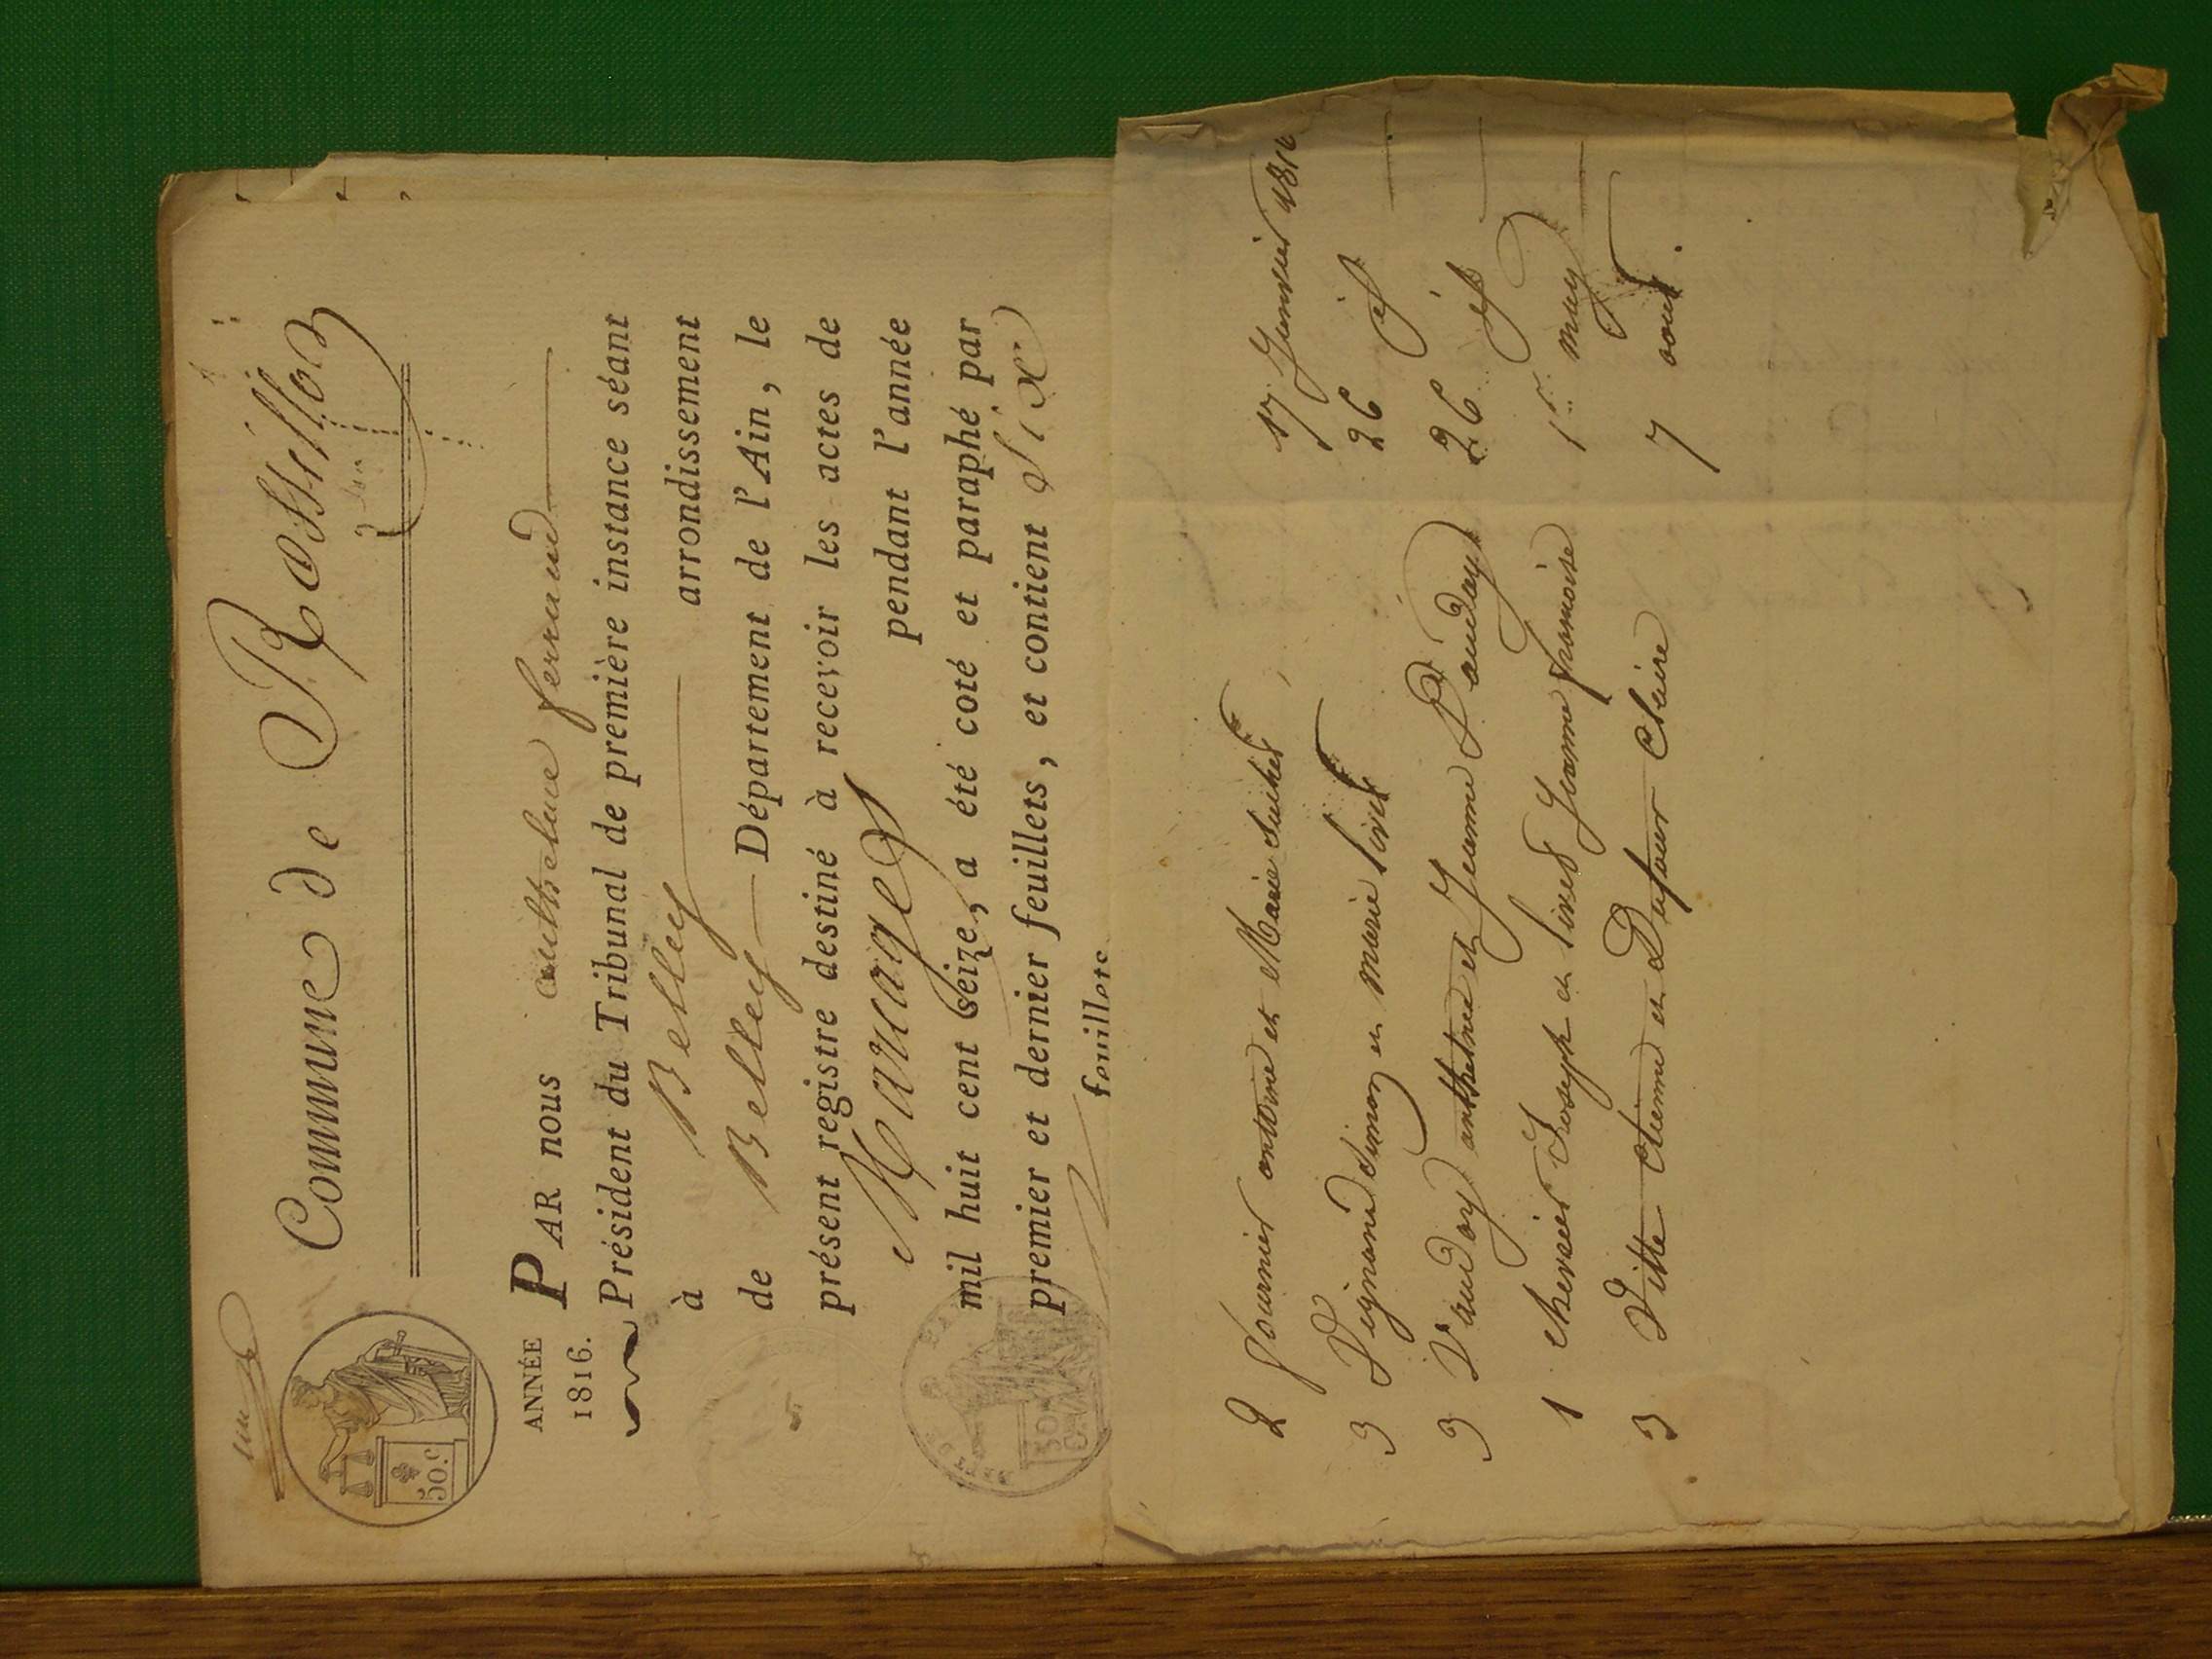 Commune de Rossillon
50.c
ANNÉE
1816.
PAR nous anthelme ferrand
Président du Tribunal de première instance séant
à Belley arrondissement
de Belley Département de l'Ain, le
présent registre destiné à recevoir les actes de
Mariages pendant l'année
mil huit cent seize, a été coté et paraphé par
premier et dernier feuillets, et contient Six
feuillets
2 fournier antoine et Marie Suchet 17 Janvier 1816
3 Vignand Simon et marie livet 26 id
3 Vauday anthelme et Jeanne Vauday 26 id
1 chervier Joseph et livet Jeanne françoise 1er may
3 Vitte etienne et Dufour Claire 7 aout